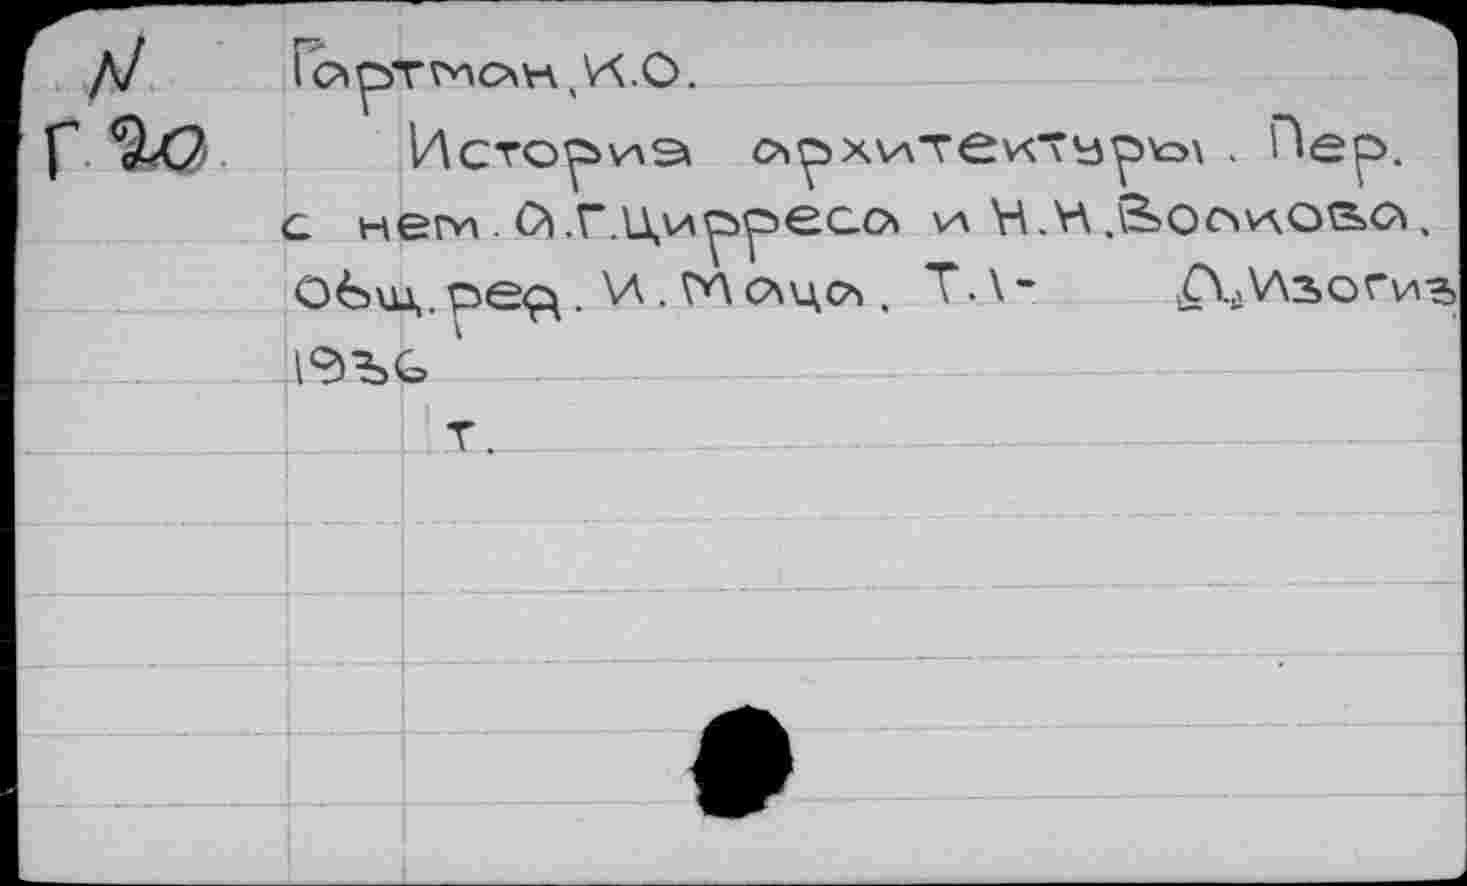 N Гартман, К.О.
Г 20 История архитектуры. Пер.
с нем. А.Г.Цирреса и Н.Н.Волкова.
Общ. ред. И. Маца. Т.1- Л., Изогиз
1936
т.